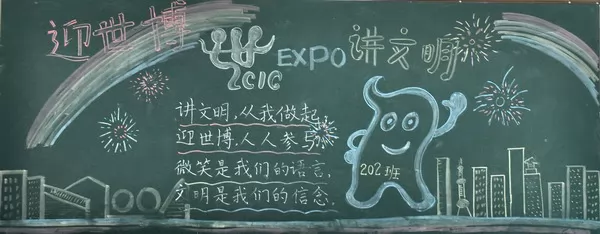 迎世博
2010
EXPO 讲文明
讲文明,从我做起,
迎世博,人人参与,
微笑是我们的语言,
文明是我们的信念.
202班